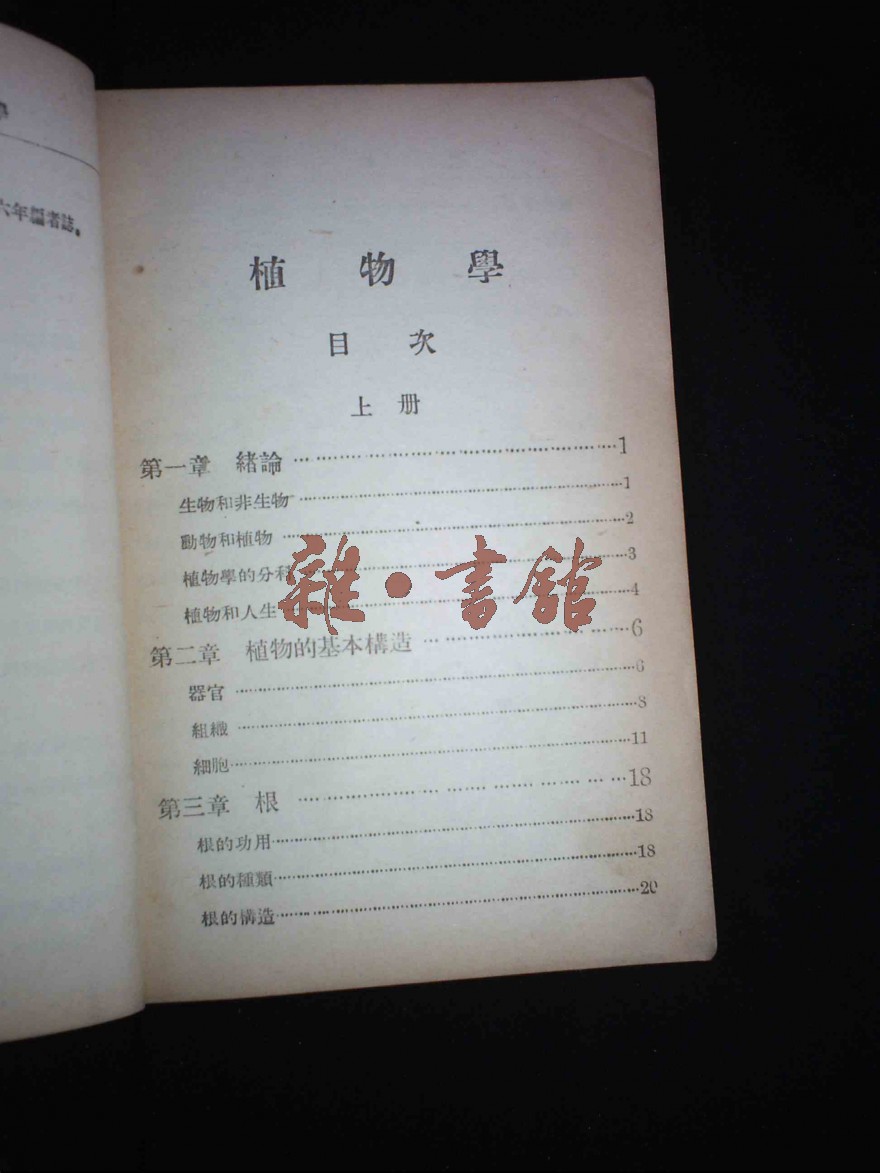 學
六年編者誌。
植物學
目次
上册
第一章 緒論……1
生物和非生物……1
動物和植物……2
植物學的分科……3
植物和人生……4
第二章 植物的基本構造……6
器官……6
組織……8
細胞……11
第三章 根……18
根的功用……18
根的種類……18
根的構造……20
雜·書館